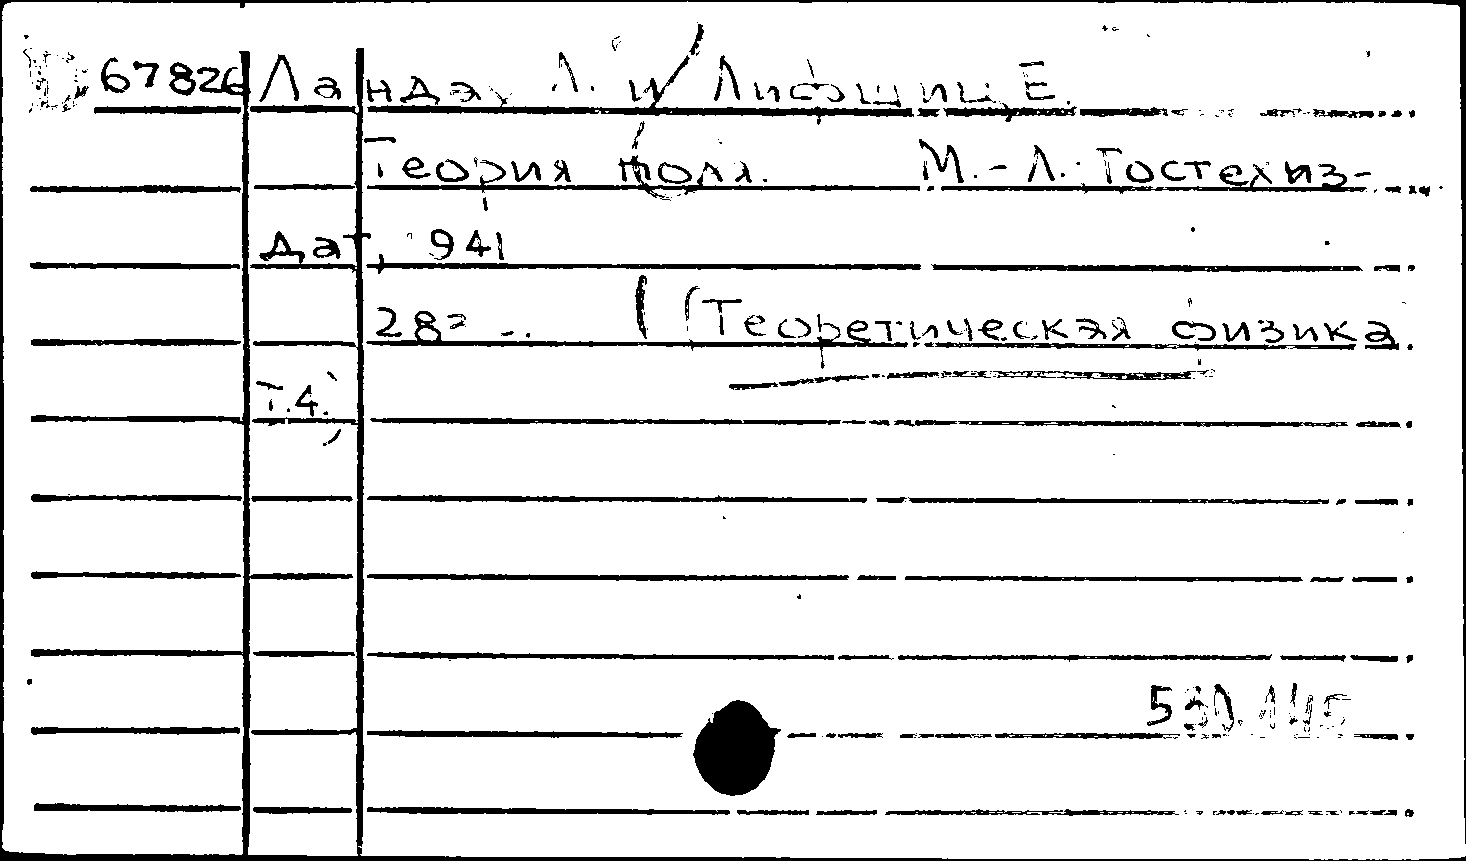 D 67826 Ландау Л. и Лифшиц, Е.
Теория поля. М.-Л.: Гостехиз-
дат, 941
283 с. (Теоретическая физика
т.4.)
530.145